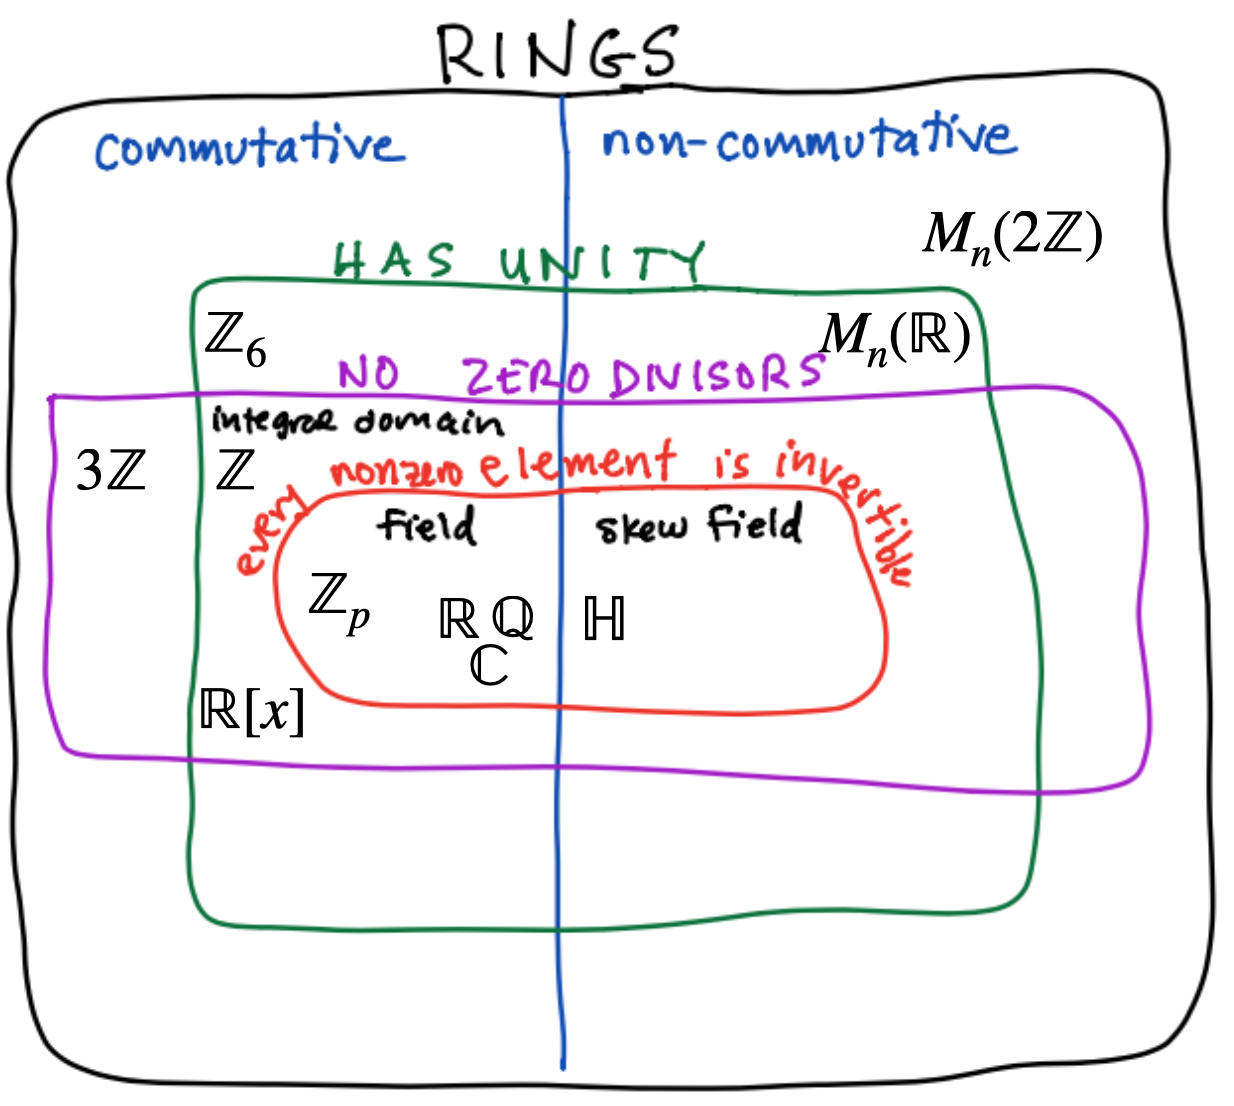 RINGS
commutative
non-commutative
Mₙ(2ℤ)
HAS UNITY
ℤ₆
Mₙ(ℝ)
NO ZERO DIVISORS
integral domain
3ℤ
ℤ
every nonzero element is invertible
field
skew field
ℤₚ
ℝ ℚ
ℍ
ℂ
ℝ[x]